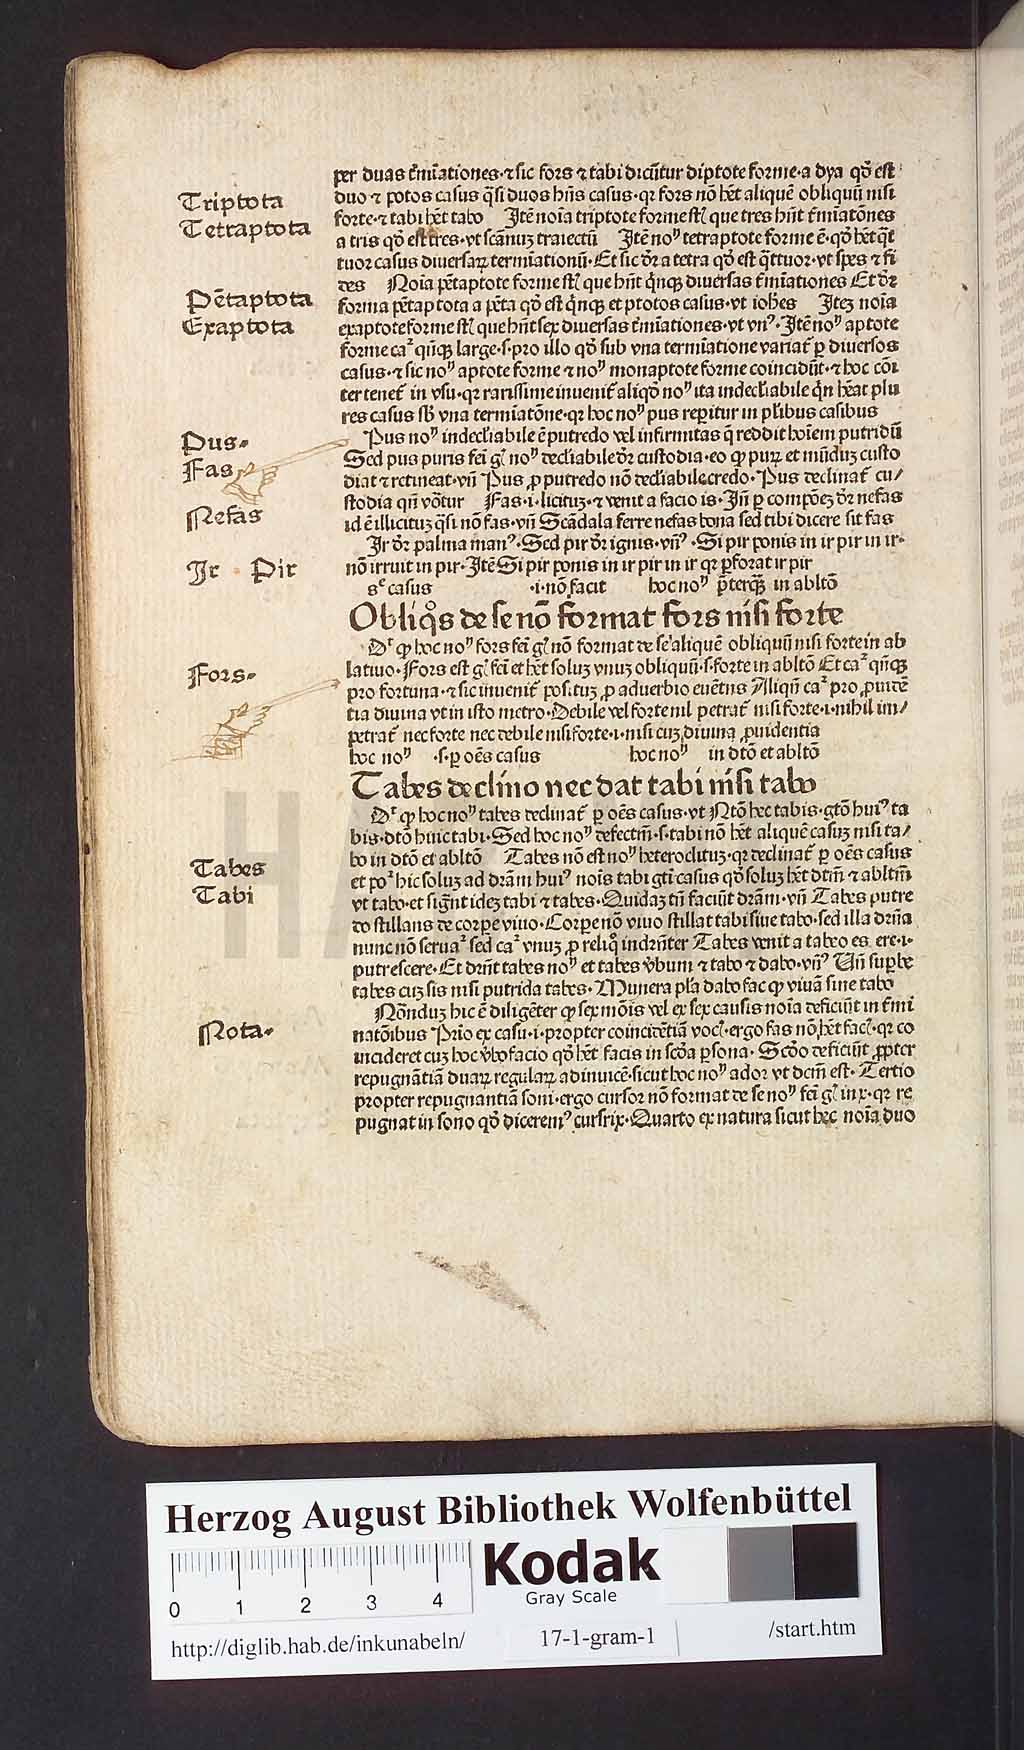 per duas t̄mīationes·⁊ sic fors ⁊ tabi dicūtur diptote forme·a dya qd̓ est
Triptota
duo ⁊ potos casus q̄si duos hn̄s casus·qr fors nō hēt aliquē obliquū nisi
forte·⁊ tabi hēt tabo Itē noīa triptote forme st̄ que tres hn̄t t̄miatōnes
Tetraptota
a tris qd̓ est tres·vt scānuꝫ traiectū Itē noᵘ tetraptote forme ē·qd̓ hēt q̄t
tuor casus diuersaꝝ termīationū·Et sic dr̄ a tetra qd̓ est q̄ttuor·vt spes ⁊ fi
des Noīa pētaptote forme st̄ que hn̄t qn̄qꝫ diuersas t̄mīationes Et dr̄
Pētaptota
forma pētaptota a pēta qd̓ est qn̄qꝫ et ptotos casus·vt ioh̄es Iteꝫ noīa
Exaptota
exaptote forme st̄ que hn̄t sex diuersas t̄mīationes·vt vnꝰ·Itē noᵘ aptote
forme caꝛ̉ qn̄qꝫ large·s·pro illo qd̓ sub vna termīatione variat̉ ꝑ diuersos
casus·⁊ sic noᵘ aptote forme ⁊ noᵘ monaptote forme coincidūt·⁊ hoc cōi
ter tenet̉ in vsu·qr rarissime inuenit̉ aliqd̓ noᵘ ita indeclīabile qn̄ hēat plu
res casus sb̓ vna termīatōne·qr hoc noᵘ pus reꝑitur in pl̄ibus casibus
Pus·
Pus noᵘ indecl̄iabile ē putredo vel infirmitas q̄ reddit hoīem putridū
Fas
Sed pus puris fei̅ gn̄ noᵘ declīabile dr̄ custodia·eo ꝙ puꝝ et mūduꝫ custo
diat ⁊ retineat·vn̄ Pus ꝓ putredo nōn declīabile credo·Pus declinat̉ cu/
stodia qn̄ vōtur Fas·i·licituꝫ·⁊ venit a facio is·In̄ ꝑ compōeꝫ dr̄ nefas
Nefas
id ē illicituꝫ q̄si nōn fas·vn̄ Scādala ferre nefas bona sed tibi dicere sit fas
Ir dr̄ palma manꝰ·Sed pir dr̄ ignis·vn̄ꝰ·Si pir ponis in ir pir in ir·
Ir · Pir
nōn irruit in pir·Itē Si pir ponis in ir pir in ir qr ꝑforat ir pir
sᵉ casus ·i·nōn facit hoc noᵘ p̄terqꝫ in abltō
Obliqᵒs de se nōn format fors nisi forte
Dꝛ̉ ꝙ hoc noᵘ fors fei̅ gn̄ nōn format de se aliquē obliquū nisi forte in ab
Fors·
latiuo·Fors est gn̄ fei̅ et hēt soluꝫ vnuꝫ obliquū·s·forte in abltō Et caꝛ̉ qn̄qꝫ
pro fortuna·⁊ sic inuenit̉ posituꝫ ꝓ aduerbio euētus Aliqn̄ caꝛ̉ pro ꝓuidē
tia diuina vt in isto metro·Debile vel forte nil petrat̉ nisi forte·i·nihil im/
petrat̉ nec forte nec debile nisi forte·i·nisi cuꝫ diuina ꝓuidentia
hoc noᵘ ·s·ꝑ oēs casus hoc noᵘ in dtō et abltō
Tabes declīno nec dat tabi nisi tabo
Dꝛ̉ ꝙ hoc noᵘ tabes declinat̉ ꝑ oēs casus·vt Ntō hec tabis·gtō huiꝰ ta
bis·dtō huic tabi·Sed hoc noᵘ defectm̄·s·tabi nōn hēt aliquē casuꝫ nisi ta/
bo in dtō et abltō Tabes nōn est noᵘ heteroclituꝫ·qr declinat̉ ꝑ oēs casus
Tabes
et poꝛ̉ hic soluꝫ ad drām huiꝰ noīs tabi gti casus qd̓ soluꝫ hēt dtm̄ ⁊ abltm̄
Tabi
vt tabo·et sign̄t ideꝫ tabi ⁊ tabes·Quidaꝫ tn̄ faciūt drām·vn̄ Tabes putre
do stillans de corꝑe viuo·Corꝑe nōn viuo stillat tabi siue tabo·sed illa drn̄a
nunc nōn seruaꝛ̉ sed caꝛ̉ vnuꝫ ꝓ reliqᵒ indrn̄ter Tabes venit a tabeo es ere·i·
putrescere·Et drn̄t tabes noᵘ et tabes v̄bum ⁊ tabo ⁊ dabo·vn̄ꝰ Un̄ suꝑbe
tabes cuꝫ sis nisi putrida tabes·Munera pl̄a dabo fac ꝙ viuā sine tabo
Nōnduꝫ hic ē diligēter ꝙ sex mōis vel ex sex causis noīa deficiūt in t̄mi
Nota·
natōnibus Prīo ex casu·i·propter coincidētiā voc̄·ergo fas nōn hēt fac̄·qr co
incideret cuꝫ hoc v̄bo facio qd̓ hēt facis in scd̓a ꝑsona·Scd̓o deficiūt ꝓpter
repugnātiā duaꝝ regulaꝝ adinuicē·sicut hoc noᵘ ador vt dcm̄ est·Tertio
propter repugnantiā soni·ergo cursor nōn format de se noᵘ fei̅ gn̄ in x·qr re
pugnat in sono qd̓ diceremꝰ cursrix·Quarto ex natura sicut hec noīa duo
HAB
Herzog August Bibliothek Wolfenbüttel
0 1 2 3 4
Kodak
Gray Scale
http://diglib.hab.de/inkunabeln/ 17-1-gram-1 /start.htm